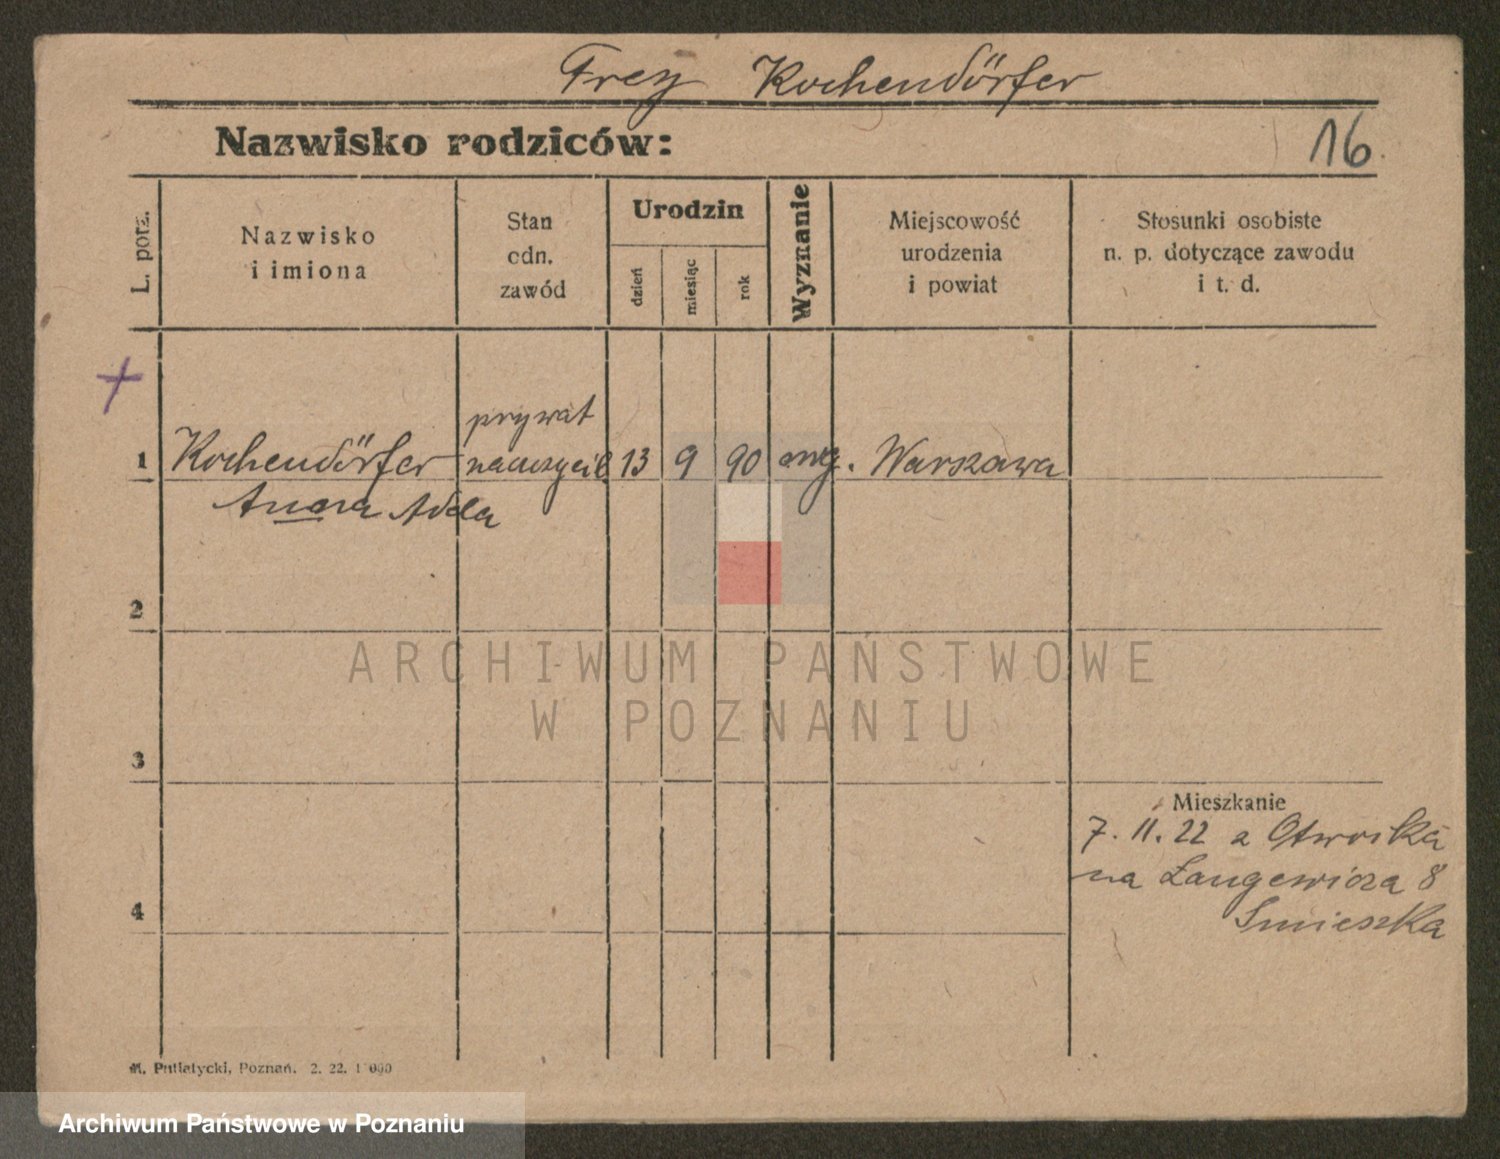 Frey Kochendörfer
Nazwisko rodziców:
16
L. porz.
Nazwisko
i imiona
Stan
odn.
zawód
Urodzin
dzień
miesiąc
rok
Wyznanie
Miejscowość
urodzenia
i powiat
Stosunki osobiste
n. p. dotyczące zawodu
i t. d.
+
prywat
1 Kochendörfer nauczyciel 13 9 90 ewg. Warszawa
Anna Adela
2
ARCHIWUM PAŃSTWOWE
W POZNANIU
3
Mieszkanie
7. 11. 22 z Otwocka
na Langewicza 8
4
M. Putiatycki, Poznań. 2. 22.
Archiwum Państwowe w Poznaniu